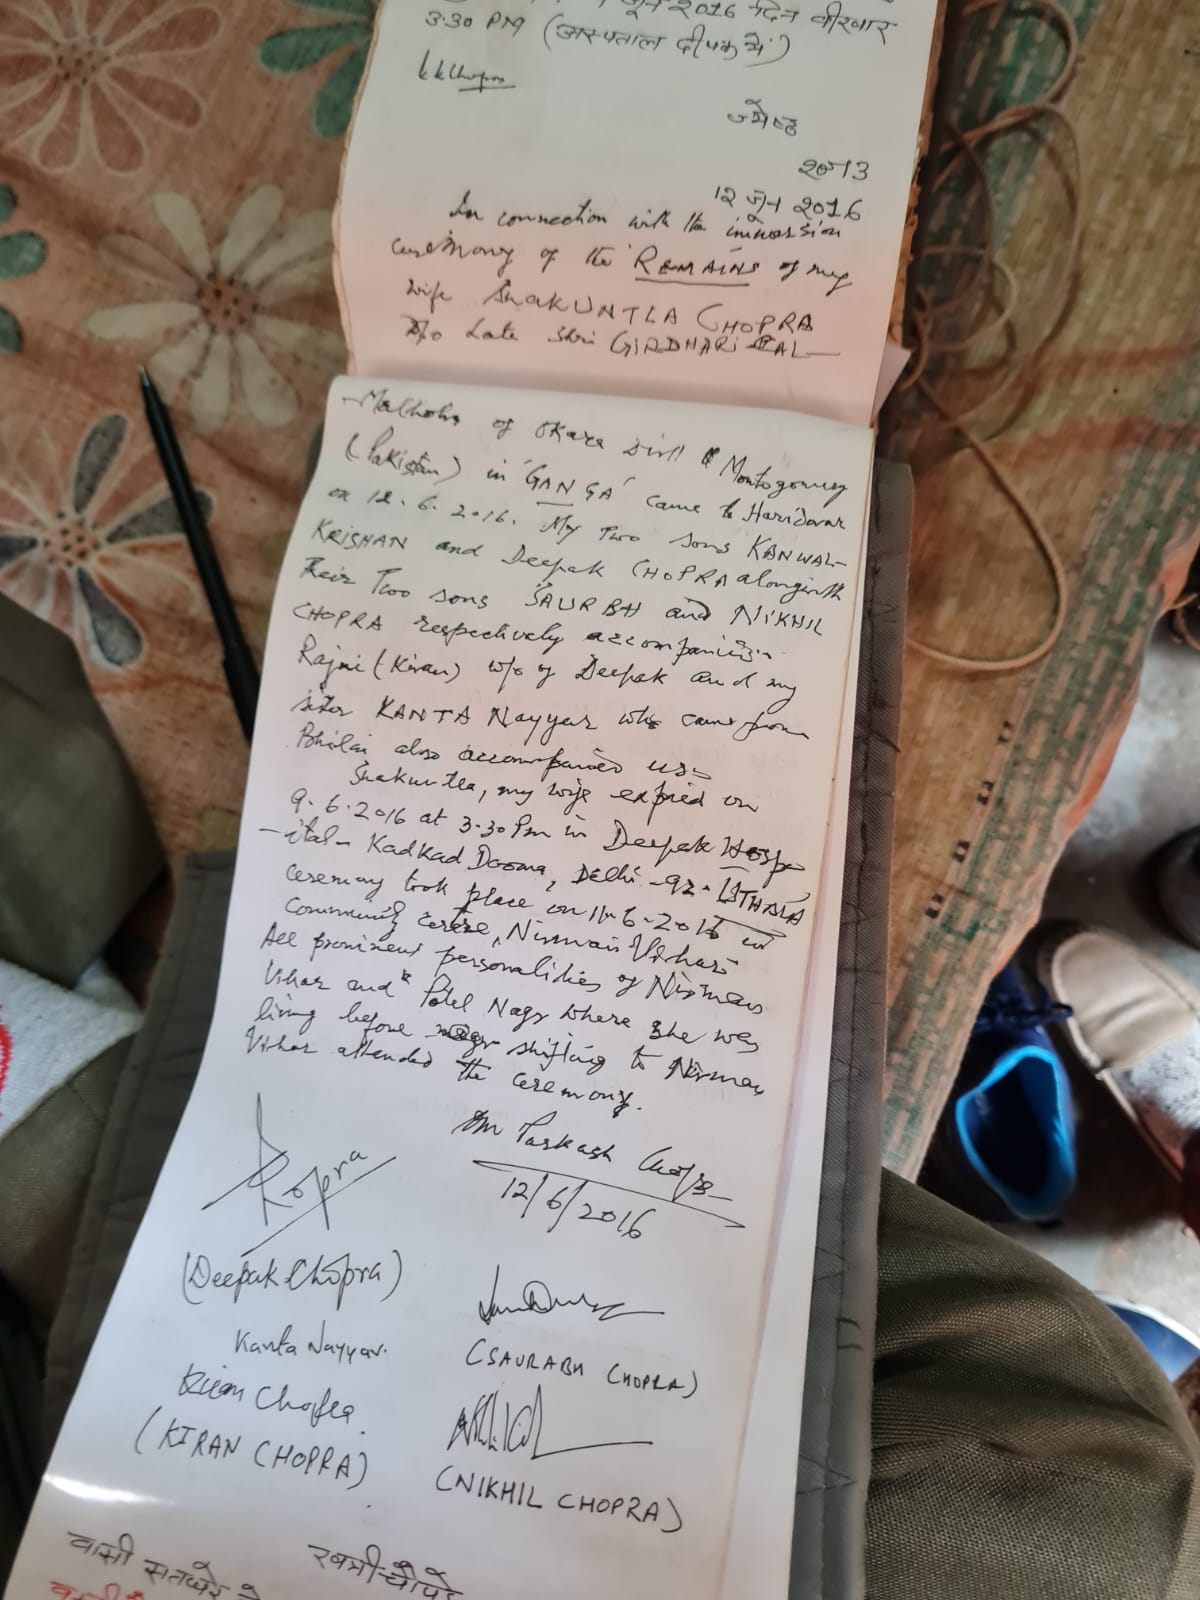 जून 2016 दिन वीरवार
3.30 PM (अस्पताल दीपक में)
KKChopra
ज्येष्ठ
2073
12 जून 2016
In connection with the immersion
ceremony of the REMAINS of my
wife SHAKUNTLA CHOPRA
D/o Late Shri GIRDHARI LAL
Malhotra of Okara Distt Montogomery
(Pakistan) in 'GANGA' came to Haridwar
on 12.6.2016. My Two sons KANWAL-
KRISHAN and Deepak CHOPRA alongwith
Their Two sons SAURBH and NIKHIL
CHOPRA respectively accompanied.
Rajni (Kiran) w/o of Deepak and my
sister KANTA Nayyar who came from
Bhilai also accompanied us.
Shakuntla, my wife expired on
9.6.2016 at 3.30 Pm in Deepak Hosp
-ital- KadKad Dooma, Delhi-92.
ceremony took place on 11-6-2016 in
Community Centre, Nirman Vihar.
All prominent personalities of Nirman
Vihar and Patel Nagr where she was
living before shifting to Nirman
Vihar attended the ceremony.
Om Parkash Chopra
12/6/2016
Chopra
(Deepak Chopra)
Kanta Nayyar.
(SAURABH CHOPRA)
Kiran Chopra
(KIRAN CHOPRA)
(NIKHIL CHOPRA)
वासी